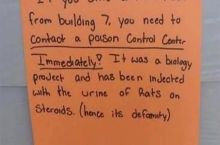 from building 7, you need to
contact a poison control Center
Immediately! It was a biology
project and has been injected
with the urine of Rats on
Steroids. (hence its deformity)